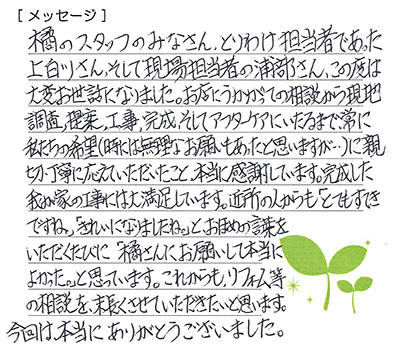 [メッセージ]
橘のスタッフのみなさん、とりわけ担当者であった
上白ツさん、そして現場担当者の浦部さん、この度は
大変お世話になりました。お店にうかがっての相談から現地
調査、提案、工事、完成、そしてアフターケアにいたるまで、常に
私たちの希望(時には無理なお願いもあったと思いますが…)に親
切、丁寧に応えていただいたこと、本当に感謝しています。完成した
我が家の工事には大満足しています。近所の人からも「とてもすてき
ですね。」「きれいになりましたね。」とおほめの言葉を
いただくたびに「橘さんにお願いして本当に
よかった。」と思っています。これからも、リフォーム等
の相談を、末長くさせていただきたいと思います。
今回は、本当にありがとうございました。